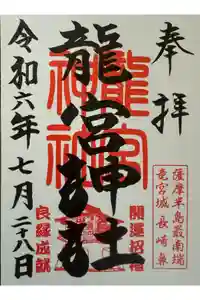 奉拝
龍宮神社
龍宮
神社
令和六年七月二十八日
薩摩半島最南端
竜宮城 長崎鼻
開運招福
良縁成就